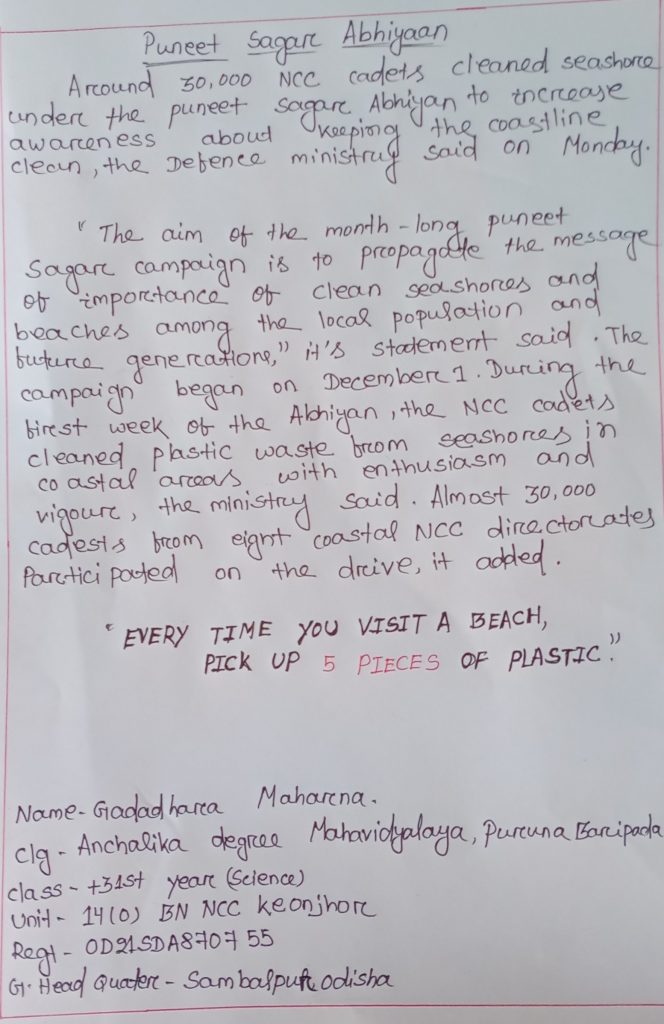 Puneet Sagar Abhiyaan
Around 30,000 NCC cadets cleaned seashore
under the puneet sagar Abhiyan to increase
awareness about keeping the coastline
clean, the Defence ministry said on Monday.
" The aim of the month-long puneet
Sagar campaign is to propagate the message
of importance of clean seashores and
beaches among the local population and
future generations," it's statement said. The
campaign began on December 1. During the
first week of the Abhiyan, the NCC cadets
cleaned plastic waste from seashores in
coastal areas with enthusiasm and
vigour, the ministry said. Almost 30,000
cadests from eight coastal NCC directorates
Participated on the drive, it added.
"EVERY TIME YOU VISIT A BEACH,
PICK UP 5 PIECES OF PLASTIC."
Name- Gadadhara Maharna.
Clg - Anchalika degree Mahavidyalaya, Puruna Baripada
class - +3 1st year (Science)
Unit - 14(O) BN NCC Keonjhor
Regt - OD21SDA870755
G. Head Quater - Sambalpur, Odisha